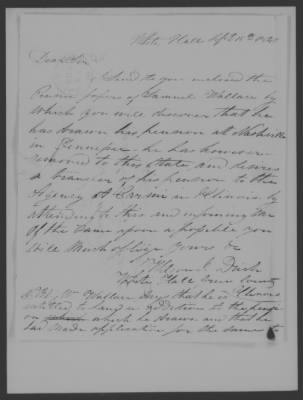 White Hall Sept 15th 1840
Dear Sir
I send to you enclosed the
Pension papers of Samuel Wallace by
which you will discover that he
has drawn his pension at Nashville
in Tennessee he has however
removed to this State and desires
a transfer of his pension to the
Agency at in Illinois by
attending to this and informing me
of the same upon as possible you
will Much oblige Yours &c
White Hall Green County
Illinois
P.S. Mr Wallace Says that he is
entitled to land in addition to the pension
which he draws and that he
has Made application for the same to